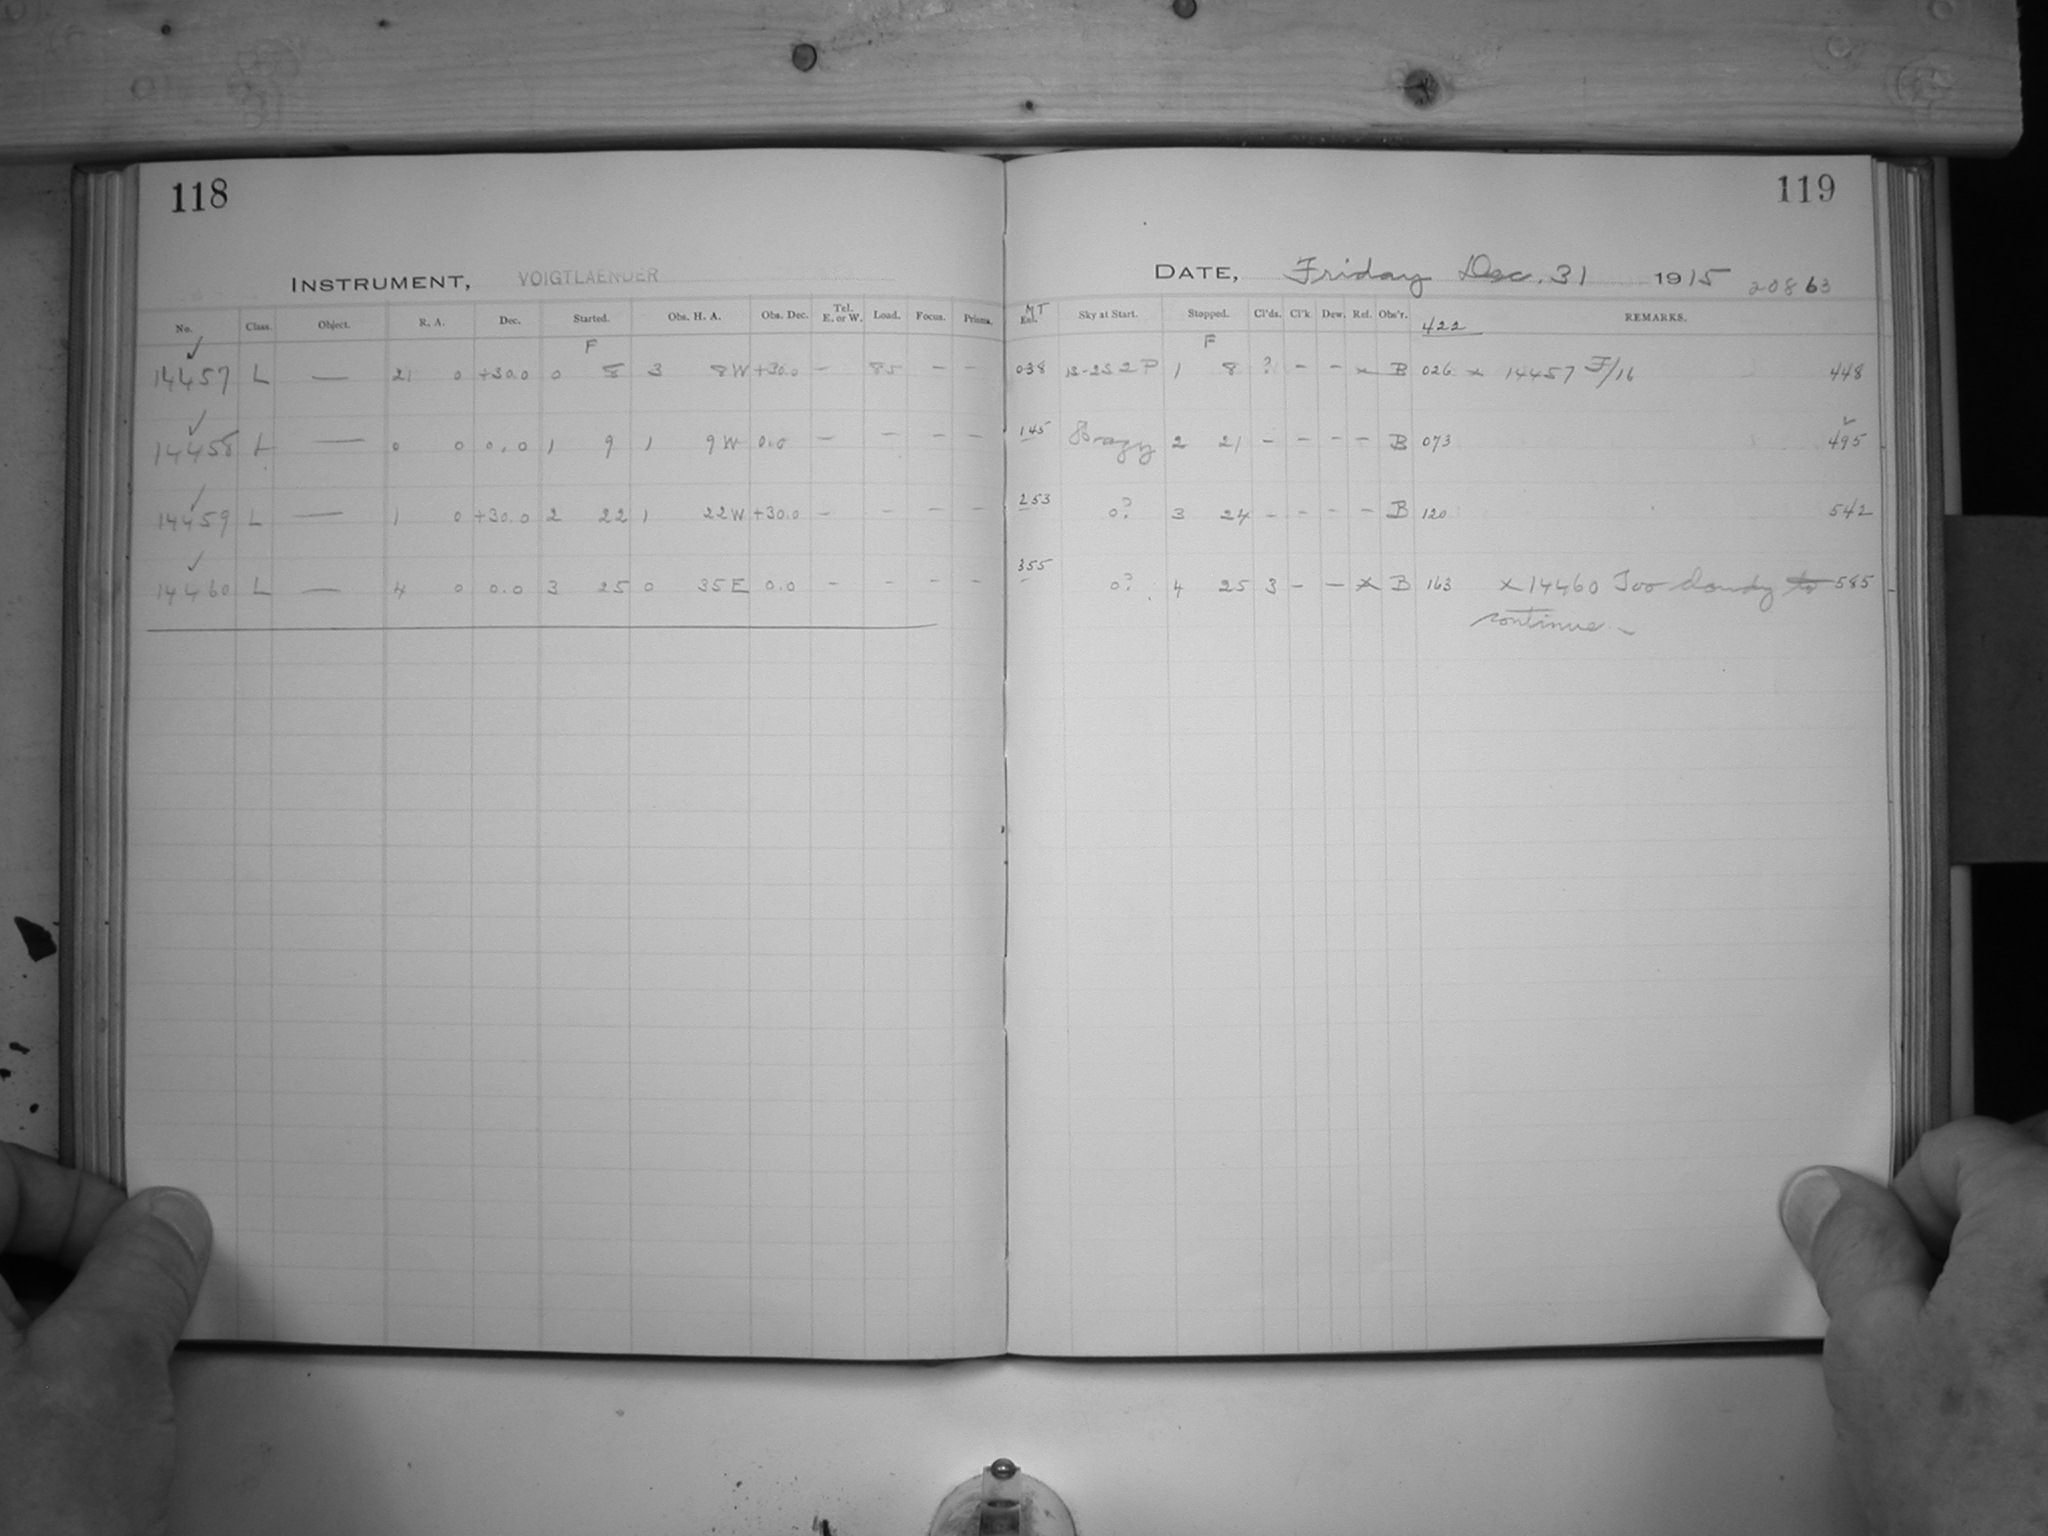 118
119
INSTRUMENT, VOIGTLAENDER
DATE, Friday Dec. 31 1915 20863
No. Class. Object. R. A. Dec. Started. Obs. H. A. Obs. Dec. Tel. E. or W. Load. Focus. Prisms. MT Sky at Start. Stopped. Cl'ds. Cl'k Dew. Ref. Obs'r. 422 REMARKS.
F F
✓
14457 L — 21 0 +30.0 0 8 3 8 W +30.0 — 85 — — 038 1 8 ? — — x B 026 x 14457 F/16 448
✓
14458 L — 0 0 0.0 1 9 1 9 W 0.0 — — — — 145 Hazy 2 21 — — — — B 073 495
✓
14459 L — 1 0 +30.0 2 22 1 22 W +30.0 — — — — 253 0? 3 24 — — — — B 120 542
✓
14460 L — 4 0 0.0 3 25 0 35 E 0.0 — — — — 355 0? 4 25 3 — — x B 163 x 14460 Too cloudy to 585
continue.—